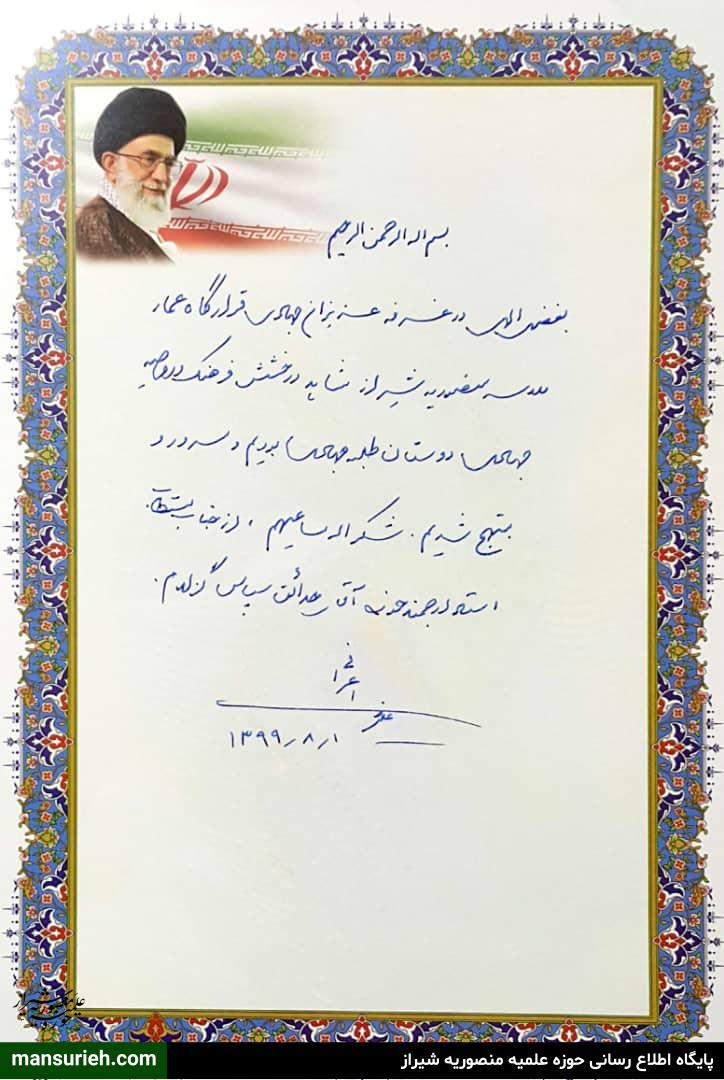 بسم اله الرحمن الرحیم
بفضل الهی در غرفه عزیزان جهادی قرارگاه عمار
مدرسه منصوریه شیراز شاهد درخشش فرهنگ و روحیه
جهادی دوستان طلبه جهادی بودیم و مسرور و
مبتهج شدیم. شکر اله مساعیهم، از جناب مستطاب
استاد ارجمند حضرت آقای حدائق سپاس گزارم.
اعرافی
۱۳۹۹٫۸٫۱
mansurieh.com
پایگاه اطلاع رسانی حوزه علمیه منصوریه شیراز